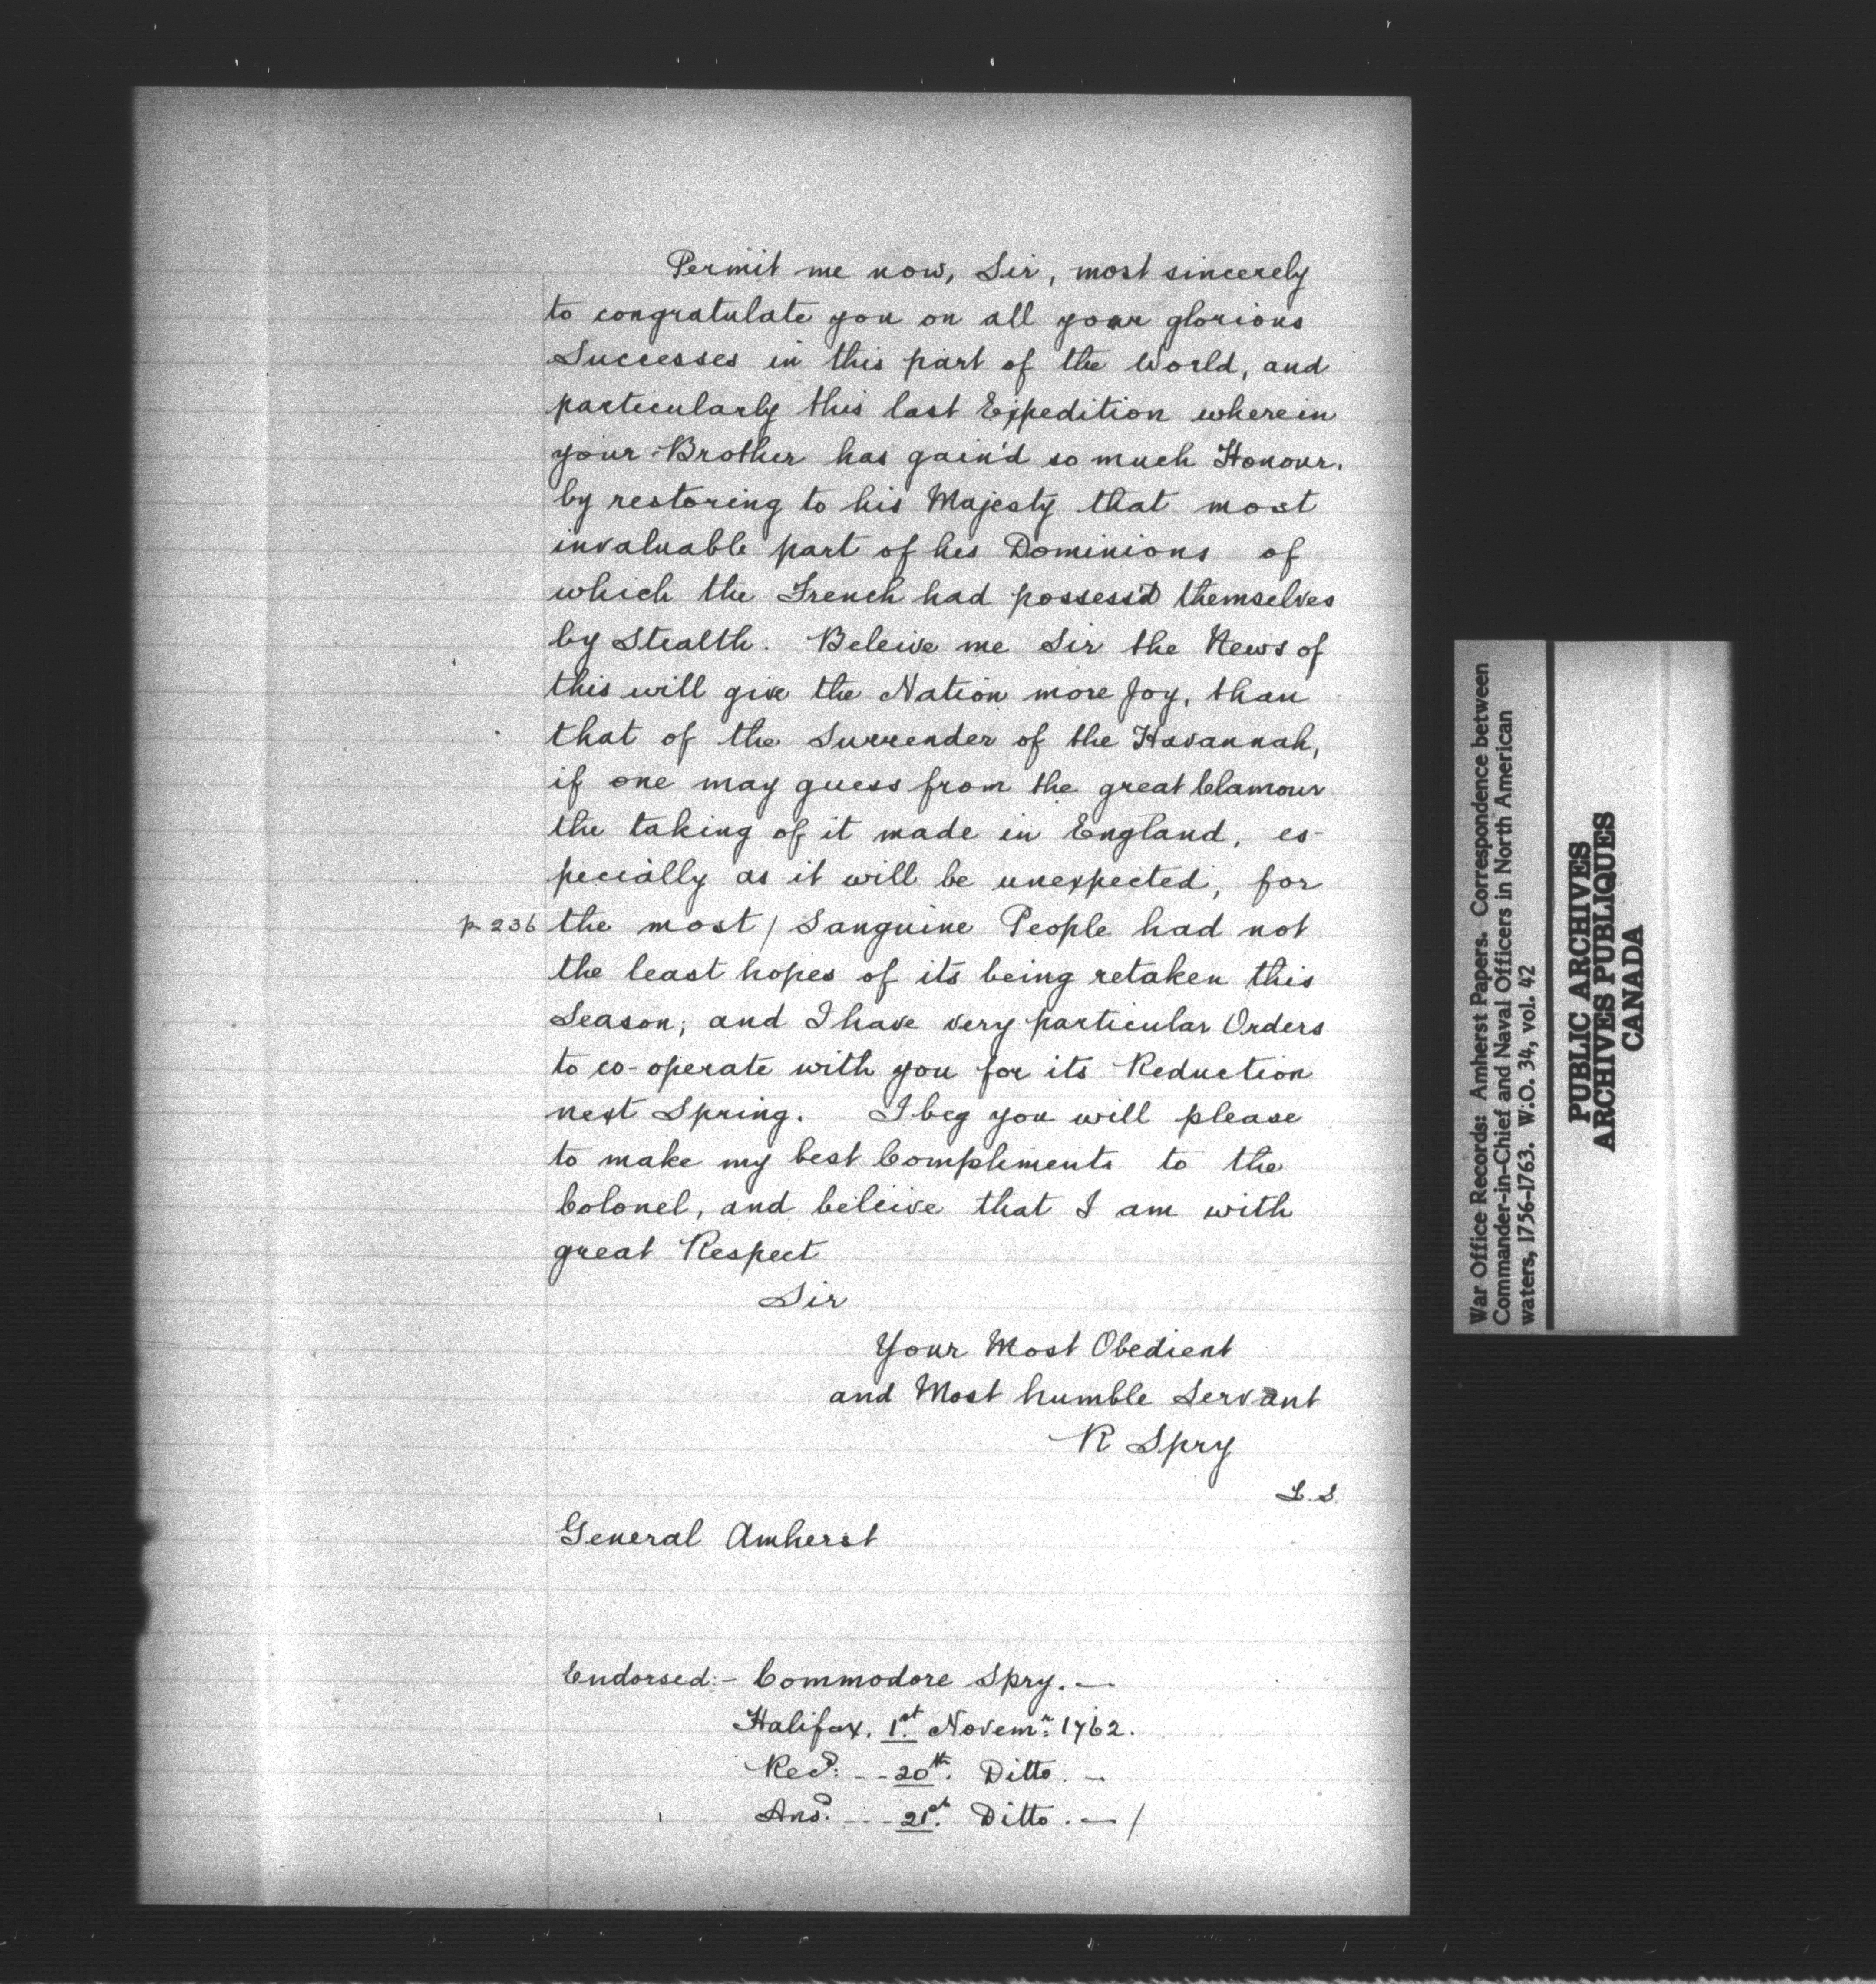 Permit me now, Sir, most sincerely
to congratulate you on all your glorious
Successes in this part of the World, and
particularly this last Expedition wherein
your Brother has gain'd so much Honour.
by restoring to his Majesty that most
invaluable part of his Dominions of
which the French had possess'd themselves
by Stealth. Beleive me Sir the News of
this will give the Nation more Joy, than
that of the Surrender of the Havannah,
if one may guess from the great Clamour
the taking of it made in England, es-
pecially as it will be unexpected, for
p 236 the most / Sanguine People had not
the least hopes of its being retaken this
Season; and I have very particular Orders
to co-operate with you for its Reduction
next Spring. I beg you will please
to make my best Compliments to the
Colonel, and beleive that I am with
great Respect
Sir
Your Most Obedient
and Most humble Servant
R Spry
L.S.
General Amherst
Endorsed:- Commodore Spry. —
Halifax. 1st. Novemr: 1762.
Recd: - - 20th. Ditto. —
Ansd: - - - 21st. Ditto. — /
War Office Records: Amherst Papers. Correspondence between
Commander-in-Chief and Naval Officers in North American
waters, 1756-1763. W.O. 34, vol. 42
PUBLIC ARCHIVES
ARCHIVES PUBLIQUES
CANADA